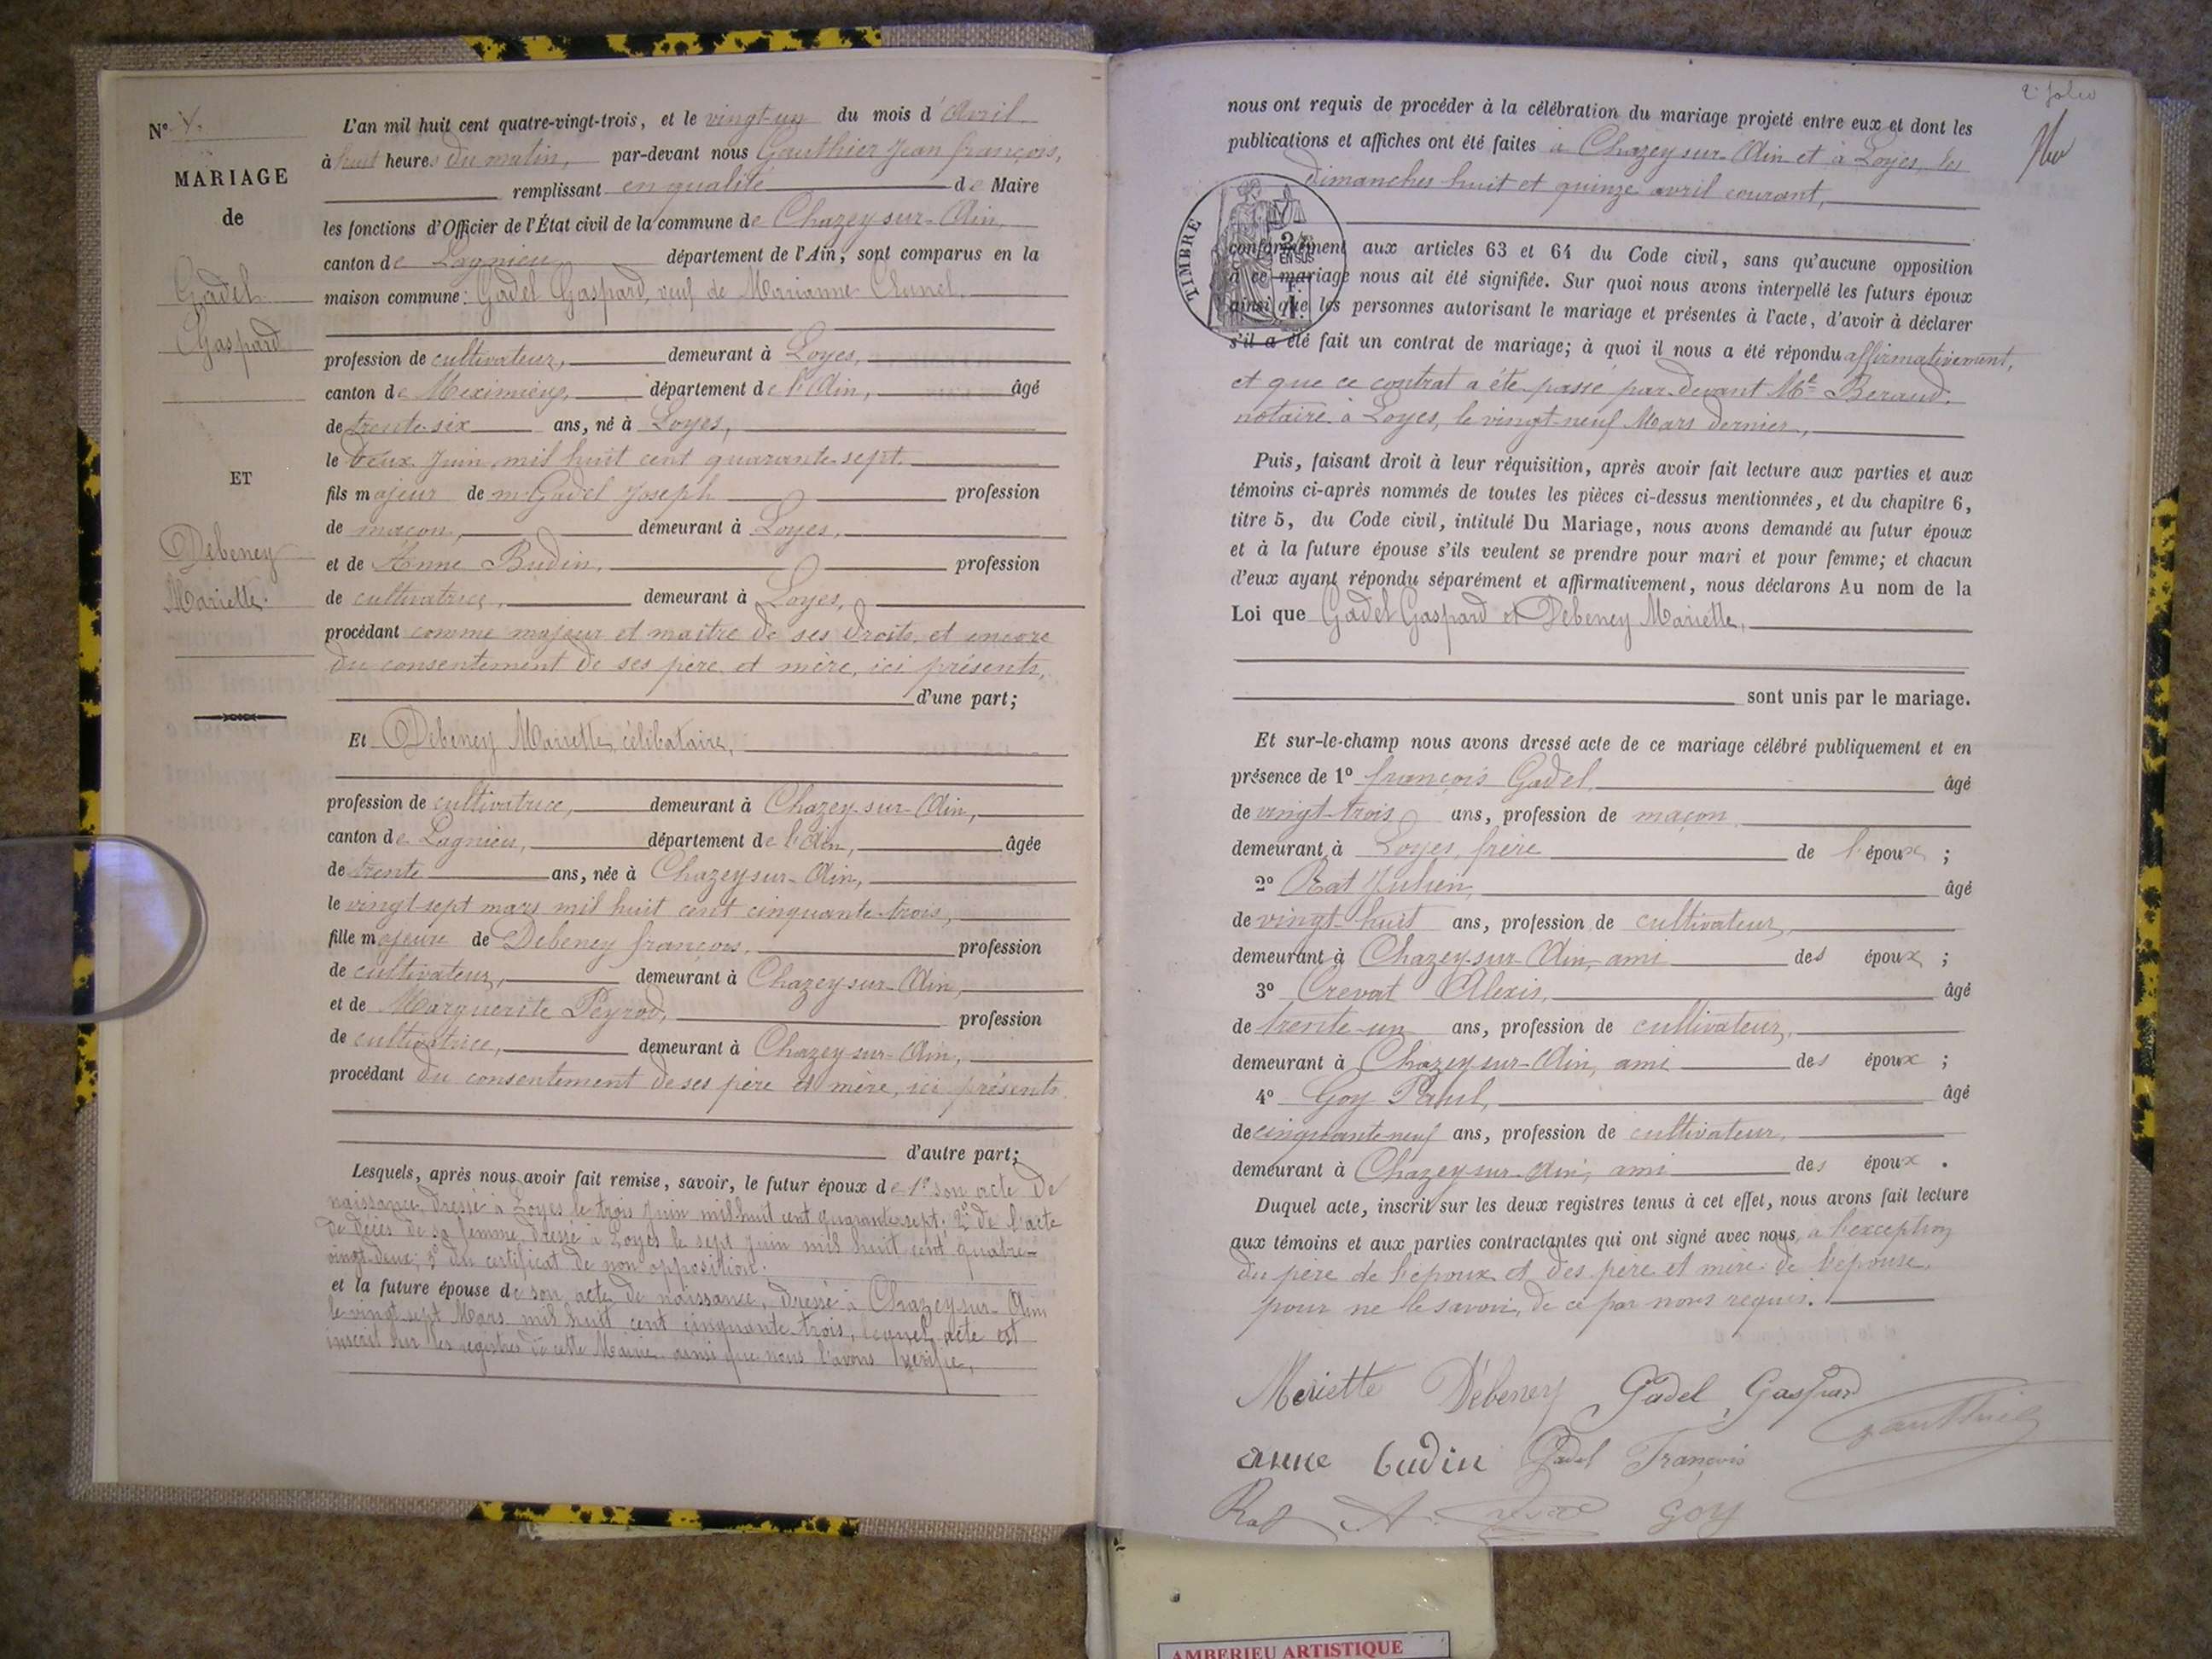 N°
MARIAGE
de
Gadel
Gaspard
ET
Debeney
Mariette.
L'an mil huit cent quatre-vingt-trois, et le vingt-un du mois d'Avril
à huit heures du matin, par-devant nous Gauthier Jean françois,
remplissant en qualité de Maire
les fonctions d'Officier de l'État civil de la commune de Chazey-sur-Ain,
canton de Lagnieu, département de l'Ain, sont comparus en la
maison commune: Gadel Gaspard, veuf de Marianne
profession de cultivateur, demeurant à Loyes,
canton de Meximieux, département de l'Ain, âgé
de trente-six ans, né à Loyes,
le deux Juin mil huit cent quarante-sept.
fils majeur de Gadel Joseph profession
de maçon, demeurant à Loyes,
et de Anne Budin, profession
de cultivatrice, demeurant à Loyes,
procédant comme majeur et maitre de ses droits et encore
du consentement de ses père et mère, ici présents,
d'une part;
Et Debeney Mariette, célibataire,
profession de cultivatrice, demeurant à Chazey-sur-Ain,
canton de Lagnieu, département de l'Ain, âgée
de trente ans, née à Chazey-sur-Ain,
le vingt-sept mars mil huit cent cinquante-trois,
fille majeure de Debeney françois, profession
de cultivateur, demeurant à Chazey-sur-Ain,
et de Marguerite Peyrod, profession
de cultivatrice, demeurant à Chazey-sur-Ain,
procédant du consentement de ses père et mère, ici présents
d'autre part;
Lesquels, après nous avoir fait remise, savoir, le futur époux de 1° son acte de
naissance, dressé à Loyes le trois Juin mil huit cent quarante-sept; 2° de l'acte
de décès de sa femme, dressé à Loyes le sept Juin mil huit cent quatre-
vingt-deux; 3° du certificat de non opposition.
et la future épouse de son acte de naissance, dressé à Chazey-sur-Ain
le vingt-sept Mars mil huit cent cinquante-trois, lequel acte est
inscrit sur les registres de cette Mairie ainsi que nous l'avons vérifié,
2e folio
nous ont requis de procéder à la célébration du mariage projeté entre eux et dont les
publications et affiches ont été faites à Chazey-sur-Ain et à Loyes, les
dimanches huit et quinze avril courant,
TIMBRE
conformément aux articles 63 et 64 du Code civil, sans qu'aucune opposition
à ce mariage nous ait été signifiée. Sur quoi nous avons interpellé les futurs époux
ainsi que les personnes autorisant le mariage et présentes à l'acte, d'avoir à déclarer
s'il a été fait un contrat de mariage; à quoi il nous a été répondu affirmativement,
et que ce contrat a été passé par-devant Me Beraud,
notaire à Loyes, le vingt-neuf Mars dernier,
Puis, faisant droit à leur réquisition, après avoir fait lecture aux parties et aux
témoins ci-après nommés de toutes les pièces ci-dessus mentionnées, et du chapitre 6,
titre 5, du Code civil, intitulé Du Mariage, nous avons demandé au futur époux
et à la future épouse s'ils veulent se prendre pour mari et pour femme; et chacun
d'eux ayant répondu séparément et affirmativement, nous déclarons Au nom de la
Loi que Gadel Gaspard et Debeney Mariette,
sont unis par le mariage.
Et sur-le-champ nous avons dressé acte de ce mariage célébré publiquement et en
présence de 1° françois Gadel, âgé
de vingt-trois ans, profession de maçon
demeurant à Loyes, frère de l'époux ;
2° Rat Julien, âgé
de vingt-huit ans, profession de cultivateur,
demeurant à Chazey-sur-Ain, ami des époux ;
3° Crevat Alexis, âgé
de trente-un ans, profession de cultivateur,
demeurant à Chazey-sur-Ain, ami des époux ;
4° Goy Paul, âgé
de cinquante-neuf ans, profession de cultivateur,
demeurant à Chazey-sur-Ain, ami des époux .
Duquel acte, inscrit sur les deux registres tenus à cet effet, nous avons fait lecture
aux témoins et aux parties contractantes qui ont signé avec nous, à l'exception
du père de l'époux et des père et mère de l'épouse,
pour ne le savoir, de ce par nous requis.
Meriette Débeney Gadel Gaspard
Gauthier
anne budin Gadel François
Rat A. Goy
AMBERIEU ARTISTIQUE